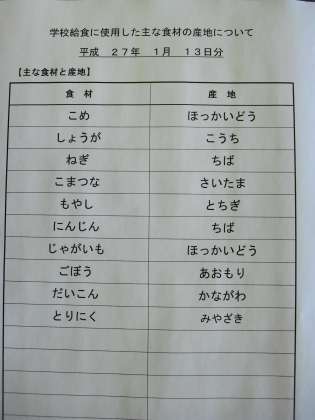 学校給食に使用した主な食材の産地について
平成　２７年　１月　１３日分
【主な食材と産地】
食　材　産　地
こめ　ほっかいどう
しょうが　こうち
ねぎ　ちば
こまつな　さいたま
もやし　とちぎ
にんじん　ちば
じゃがいも　ほっかいどう
ごぼう　あおもり
だいこん　かながわ
とりにく　みやざき